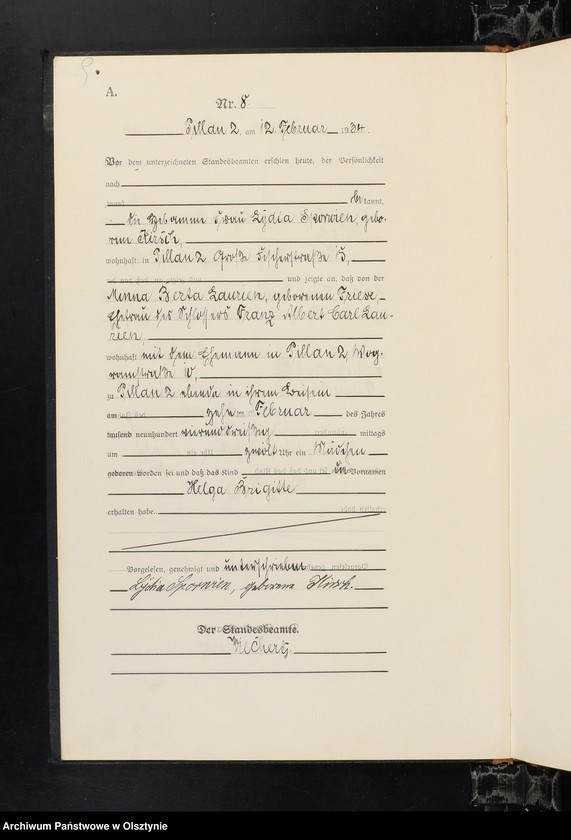 A.
Nr. 8
Pillau 2, am 12. Februar 1934.
Vor dem unterzeichneten Standesbeamten erschien heute, der Persönlichkeit
nach
kannt,
die Hebamme Frau Lydia Spornien, gebo-
rene Hirsch,
wohnhaft in Pillau 2 Große Fischerstraße 15,
und zeigte an, daß von der
Minna Berta Laurien, geborenen Friese,
Ehefrau des Schlossers Franz Albert Carl Lau-
rien,
wohnhaft mit dem Ehemann in Pillau 2, Wog-
ramstraße 10,
zu Pillau 2 ebenda in ihrem Beisein
am zehn Februar des Jahres
tausend neunhundert vierunddreißig mittags
um zwölf Uhr ein Mädchen
geboren worden sei und daß das Kind die Vornamen
Helga Brigitte
erhalten habe.
Vorgelesen, genehmigt und unterschrieben
Lydia Spornien, geborene Hirsch.
Der Standesbeamte.
Archiwum Państwowe w Olsztynie